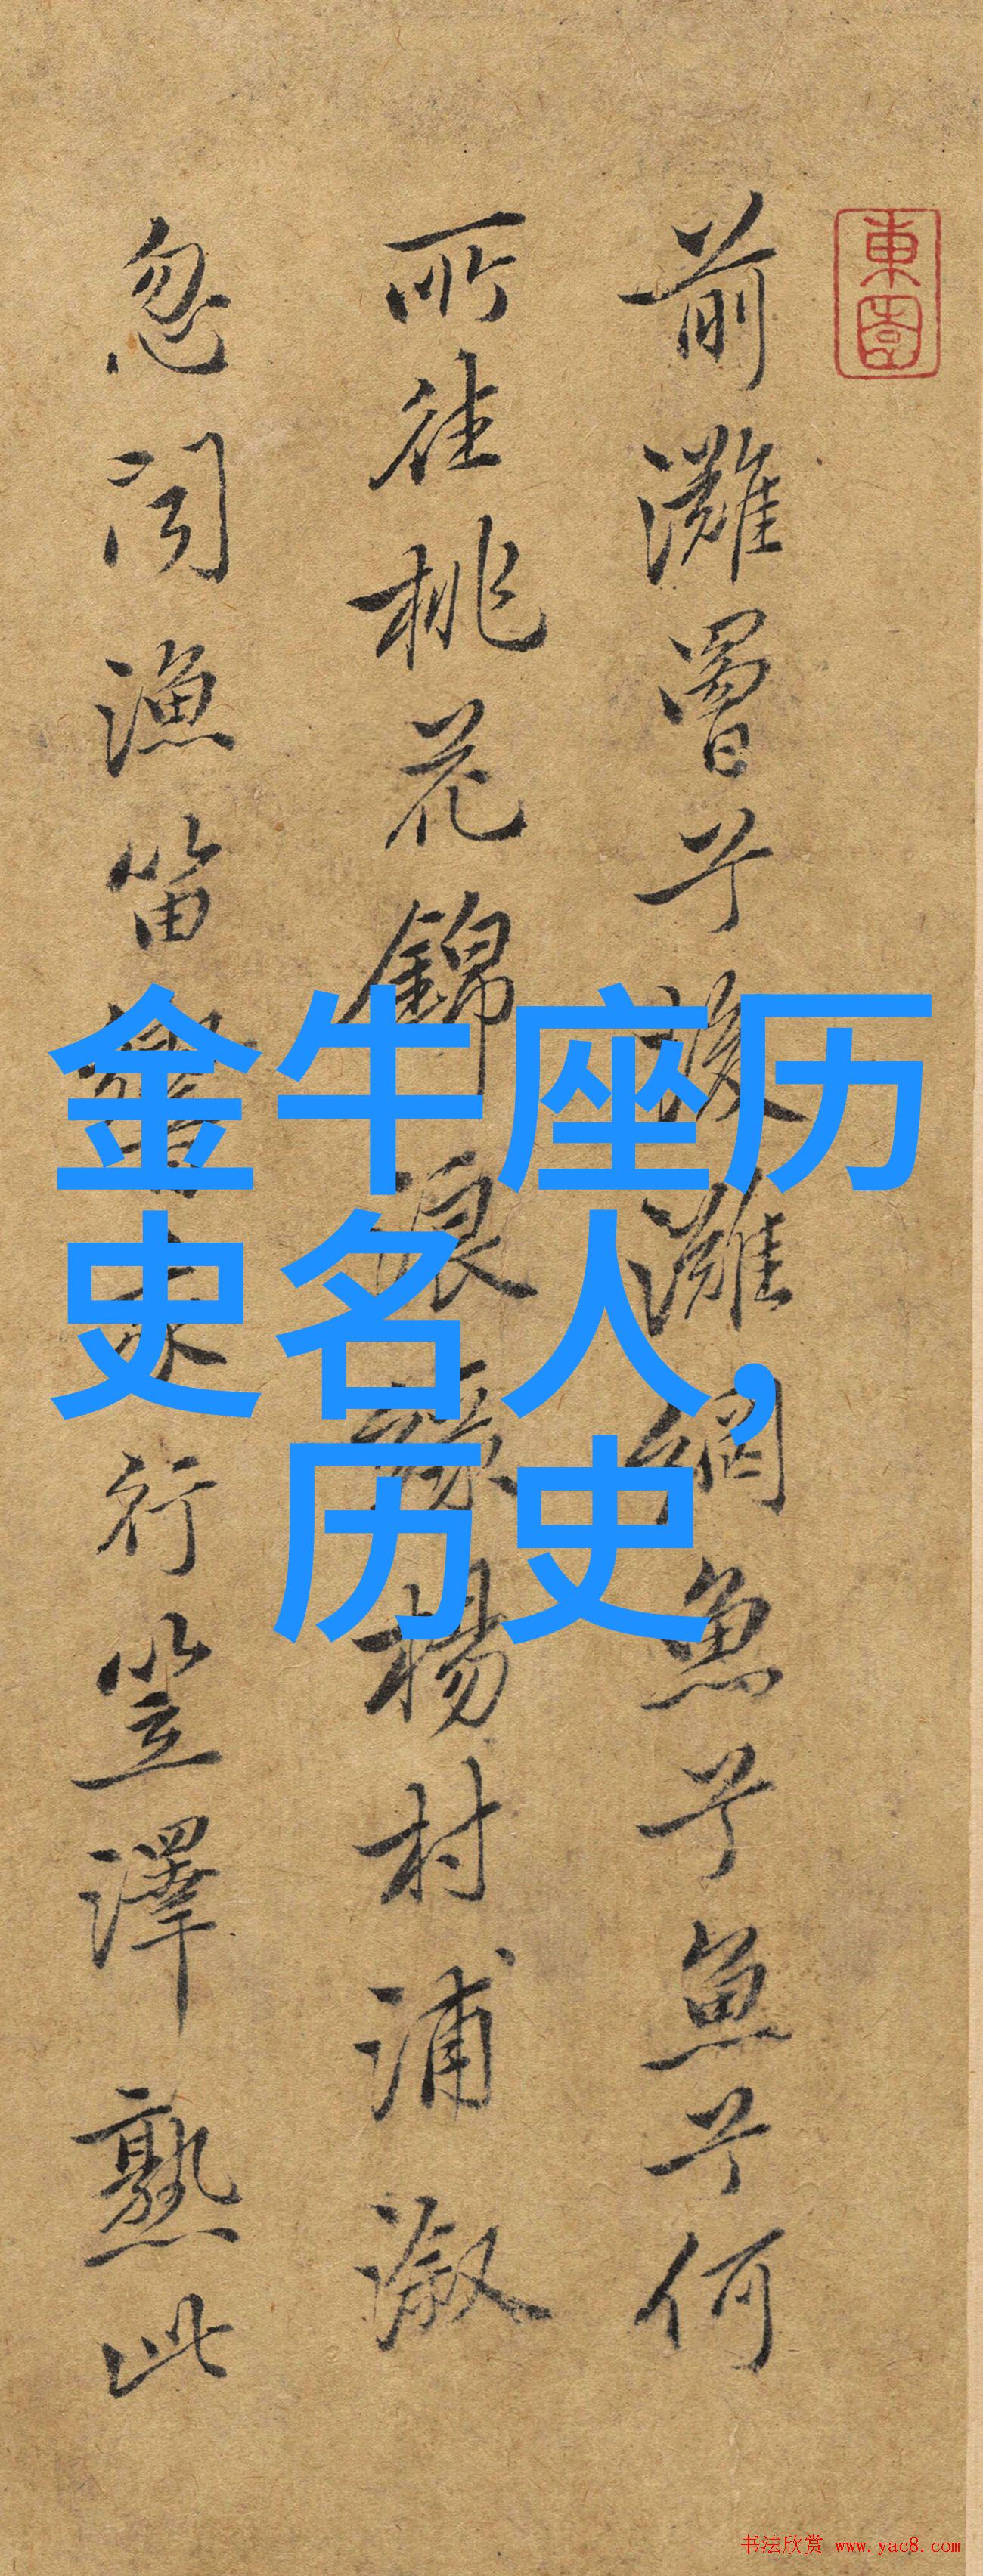 東園
前灘罾兮後灘網魚兮魚兮何
所往桃花錦浪綠楊村浦溆
忽聞漁笛響未行笠澤熟此
金牛座历
史名人,
历史
书法欣赏 www.yac8.com